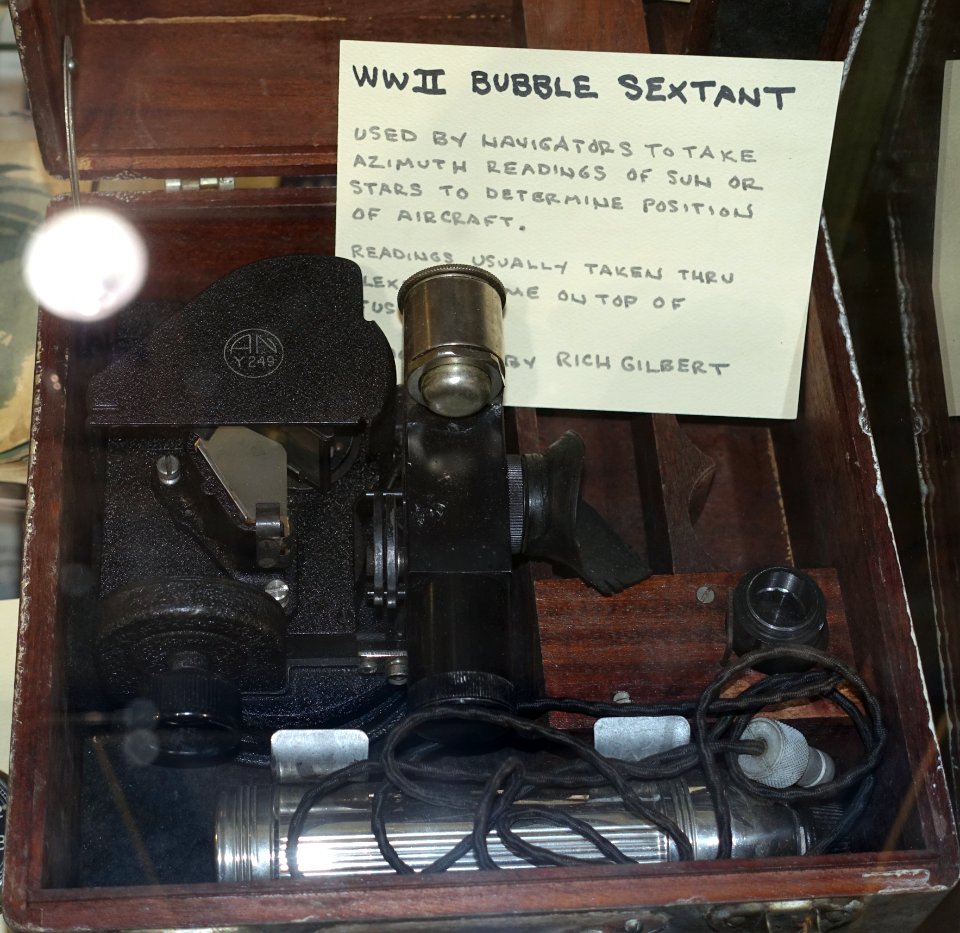 WWII BUBBLE SEXTANT
USED BY NAVIGATORS TO TAKE
AZIMUTH READINGS OF SUN OR
STARS TO DETERMINE POSITION
OF AIRCRAFT.
READINGS USUALLY TAKEN THRU
ME ON TOP OF
BY RICH GILBERT
AN
Y249